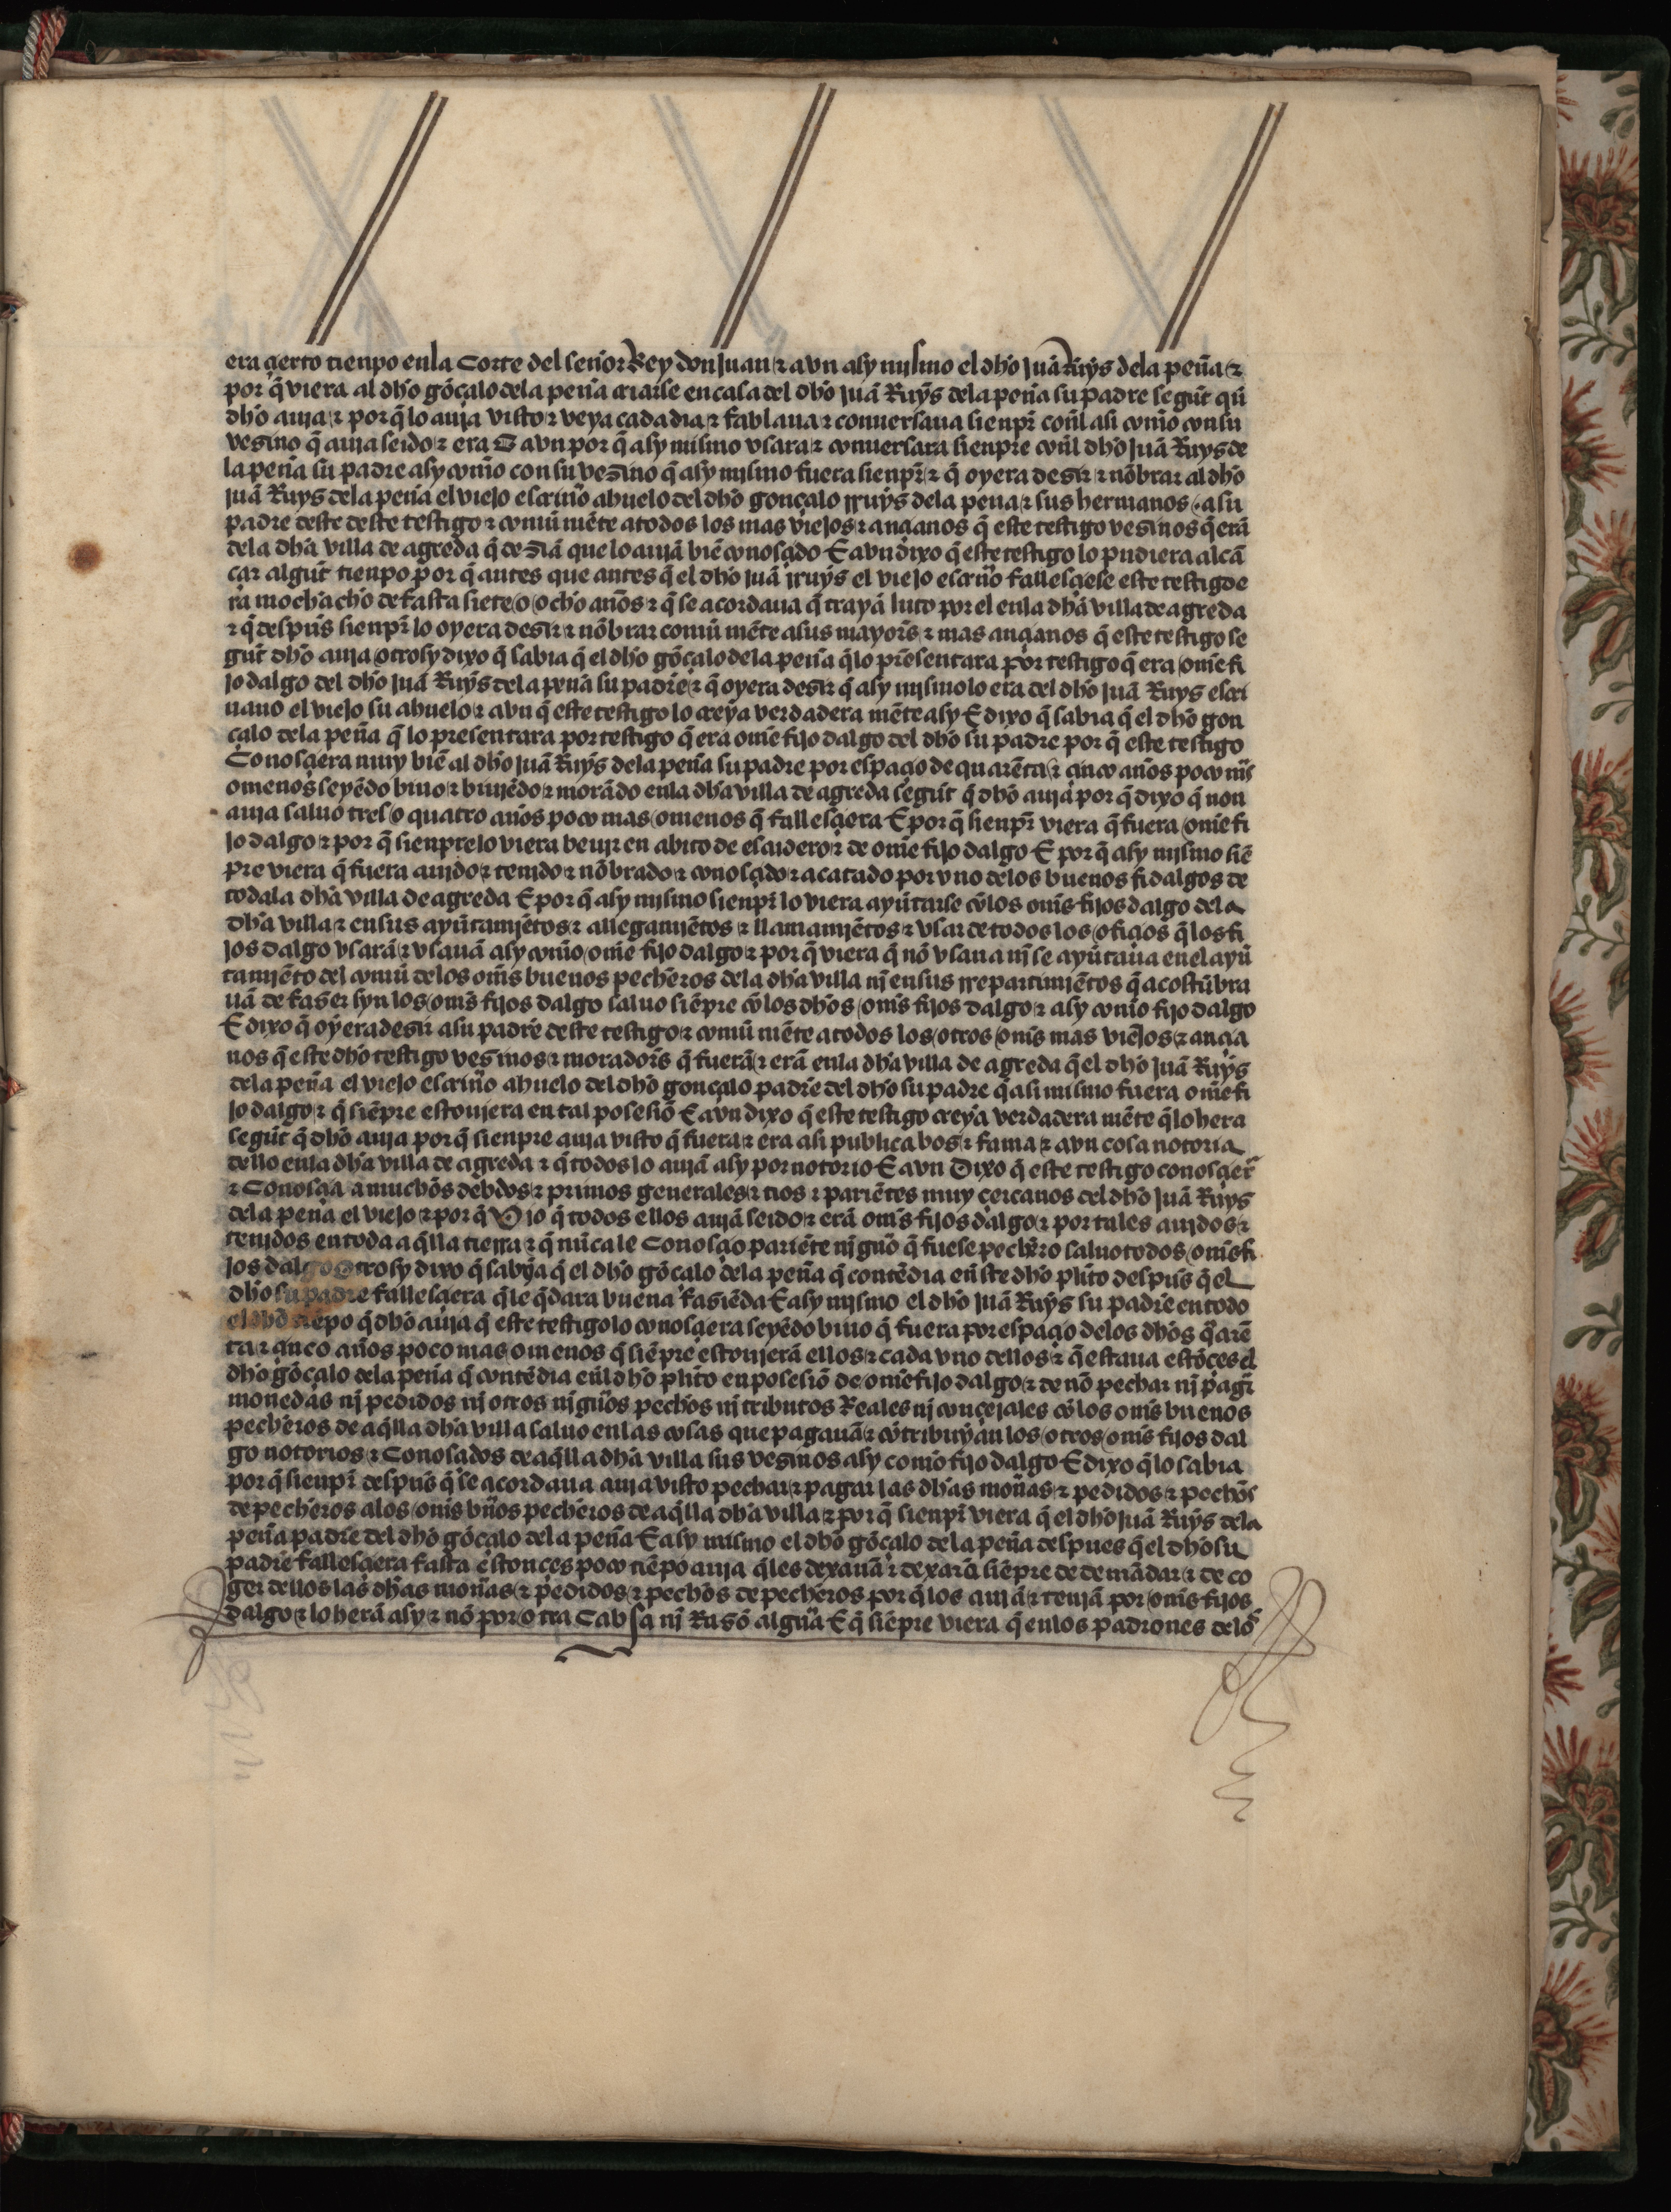 era çierto tienpo enla Corte del señor Rey don Juan ⁊ avn asy mjsmo el dh̃o juã Ruys dela peña ⁊
por q̃ viera al dh̃o gõçalo dela peña criarse en casa del dh̃o juã Ruys dela peña su padre segũt qũ
dh̃o auja ⁊ por q̃ lo auja visto ⁊ veya cada dia ⁊ fablaua ⁊ conuersaua sienpr̃ coñl asi com̃o con su
vesino q̃ auja seido ⁊ era E avn por q̃ asy mismo vsara ⁊ conuersara sienpre coñl dh̃o juã Ruys de
la peña su padre asy com̃o con su vesino q̃ asy mjsmo fuera sienpr̃ ⁊ q̃ oyera desir ⁊ nõbrar al dh̃o
juã Ruys dela peña el viejo escriuõ abuelo del dh̃o gonçalo rruys dela pena ⁊ sus hermanos ⁊ a su
padre deste deste testigo ⁊ comũ mẽte a todos los mas viejos ⁊ ançianos q̃ este testigo vesinos q̃ erã
dela dh̃a villa de agreda q̃ desiã que lo aujã biẽ conosçido E avn dixo q̃ este testigo lo pudiera alcã
çar algũt tienpo por q̃ antes que antes q̃ el dh̃o juã rruys el viejo escriuõ fallesçiese este testigo e
ra mochacho de fasta siete o ocho años ⁊ q̃ se acordaua q̃ trayã luto por el enla dh̃a villa de agreda
⁊ q̃ despũs sienpr̃ lo oyera desir ⁊ nõbrar comũ mẽte a sus mayor̃s ⁊ mas ançianos q̃ este testigo se
gũt dh̃o auja otrosy dixo q̃ sabia q̃ el dh̃o gõçalo dela peña q̃ lo pr̃esentara por testigo q̃ era om̃e fi
jo dalgo del dh̃o juã Ruys dela peña su padre ⁊ q̃ oyera desir q̃ asy mjsmo lo era del dh̃o juã Ruys escri
uano el viejo su abuelo ⁊ avn q̃ este testigo lo creya verdadera mẽte asy E dixo q̃ sabia q̃ el dh̃o gon
çalo dela peña q̃ lo presentara por testigo q̃ era om̃e fijo dalgo del dh̃o su padre por q̃ este testigo
Conosçiera muy biẽ al dh̃o juã Ruys dela peña su padre por espaçio de quarẽta ⁊ çinco años poco m̃s
o menos seyẽdo biuo ⁊ biujẽdo ⁊ morãdo enla dh̃a villa de agreda segũt q̃ dh̃o auja por q̃ dixo q̃ non
auja saluo tres o quatro años poco mas o menos q̃ fallesçiera E por q̃ sienpr̃ viera q̃ fuera om̃e fi
jo dalgo ⁊ por q̃ sienpre lo viera beujr en abito de escudero ⁊ de om̃e fijo dalgo E por q̃ asy mjsmo siẽ
pre viera q̃ fuera aujdo ⁊ tenjdo ⁊ nõbrado ⁊ conosçido ⁊ acatado por vno delos buenos fidalgos de
toda la dh̃a villa de agreda E por q̃ asy mjsmo sienpr̃ lo viera ayũtarse cõ los om̃s fijos dalgo dela
dh̃a villa ⁊ en sus ayũtamjẽtos ⁊ allegamjẽtos ⁊ llamamjẽtos ⁊ vsar de todos los ofiçios q̃ los fi
jos dalgo vsarã ⁊ vsauã asy com̃o om̃e fijo dalgo ⁊ por q̃ viera q̃ nõ vsaua nj̃ se ayũtaua enel ayũ
tamjẽto del comũ delos om̃s buenos pecheros dela dh̃a villa nj en sus rrepartimjẽtos q̃ acostũbra
uã de faser syn los om̃s fijos dalgo saluo siẽpre cõ los dh̃os om̃s fijos dalgo ⁊ asy com̃o fijo dalgo
E dixo q̃ oyera desir a su padre deste testigo ⁊ comũ mẽte a todos los otros om̃s mas viejos ⁊ ançia
nos q̃ este dh̃o testigo vesinos ⁊ morador̃s q̃ fuerã ⁊ erã enla dh̃a villa de agreda q̃ el dh̃o juã Ruys
dela peña el viejo escriuõ abuelo del dh̃o gonçalo padre del dh̃o su padre q̃ asi mismo fuera om̃e fi
jo dalgo ⁊ q̃ siẽpre estoujera en tal posesiõ E avn dixo q̃ este testigo creya verdadera mẽte q̃ lo hera
segũt q̃ dh̃o auja por q̃ sienpre auja visto q̃ fuera ⁊ era asi publica bos ⁊ fama ⁊ avn cosa notoria
dello enla dh̃a villa de agreda ⁊ q̃ todos lo aujã asy por notorio E avn Dixo q̃ este testigo conosçier̃
⁊ Conosçia a muchos debdos ⁊ primos generales ⁊ tios ⁊ pariẽtes muy çercanos del dh̃o juã Ruys
dela peña el viejo ⁊ por q̃ Vio q̃ todos ellos aujã seido ⁊ erã om̃s fijos dalgo ⁊ por tales aujdos ⁊
tenjdos en toda aq̃lla tierra ⁊ q̃ nũca le Conosçio pariẽte njguõ q̃ fuese pechero saluo todos om̃s fi
jos dalgo Otrosy dixo q̃ sabya q̃ el dh̃o gõçalo dela peña q̃ contẽdia eñste dh̃o plito despũs q̃ el
dh̃o su padre fallesçiera q̃ le q̃dara buena fasiẽda E asy mjsmo el dh̃o juã Ruys su padre en todo
el dh̃o tiẽpo q̃ dh̃o auja q̃ este testigo lo conosçiera seyẽdo biuo q̃ fuera por espaçio delos dh̃os q̃arẽ
ta ⁊ çinco años poco mas o menos q̃ siẽpre estoujerã ellos ⁊ cada vno dellos ⁊ q̃ estaua estõçes el
dh̃o gõçalo dela peña q̃ contẽdia eñl dh̃o plito en posesiõ de om̃e fijo dalgo ⁊ de nõ pechar nj pagr̃
monedas nj pedidos nj otros njgũos pechos nj tributos Reales nj conçejales cõ los om̃s buenos
pecheros de aq̃lla dh̃a villa saluo en las cosas que pagauã ⁊ cõtribuyan los otros om̃s fijos dal
go notorios ⁊ Conosçidos de aq̃lla dh̃a villa sus vesinos asy como fijo dalgo E dixo q̃ lo sabia
por q̃ sienpr̃ despũs q̃ se acordaua auja visto pechar ⁊ pagar las dh̃as moñas ⁊ pedidos ⁊ pechos
de pecheros a los om̃s bũos pecheros de aq̃lla dh̃a villa ⁊ por q̃ sienpr̃ viera q̃ el dh̃o juã Ruys dela
peña padre del dh̃o gõçalo dela peña E asy mismo el dh̃o gõçalo dela peña despues q̃ el dh̃o su
padre fallesçiera fasta estonçes poco tiẽpo auja q̃ les dexauã ⁊ dexarã siẽpre de demãdar ⁊ de co
ger dellos las dh̃as moñas ⁊ pedidos ⁊ pechos de pecheros por q̃ los aujã ⁊ tenjã por om̃s fijos
dalgo ⁊ lo herã asy ⁊ nõ por otra Cabsa nj Rasõ algũa E q̃ siẽpre viera q̃ enlos padrones delos